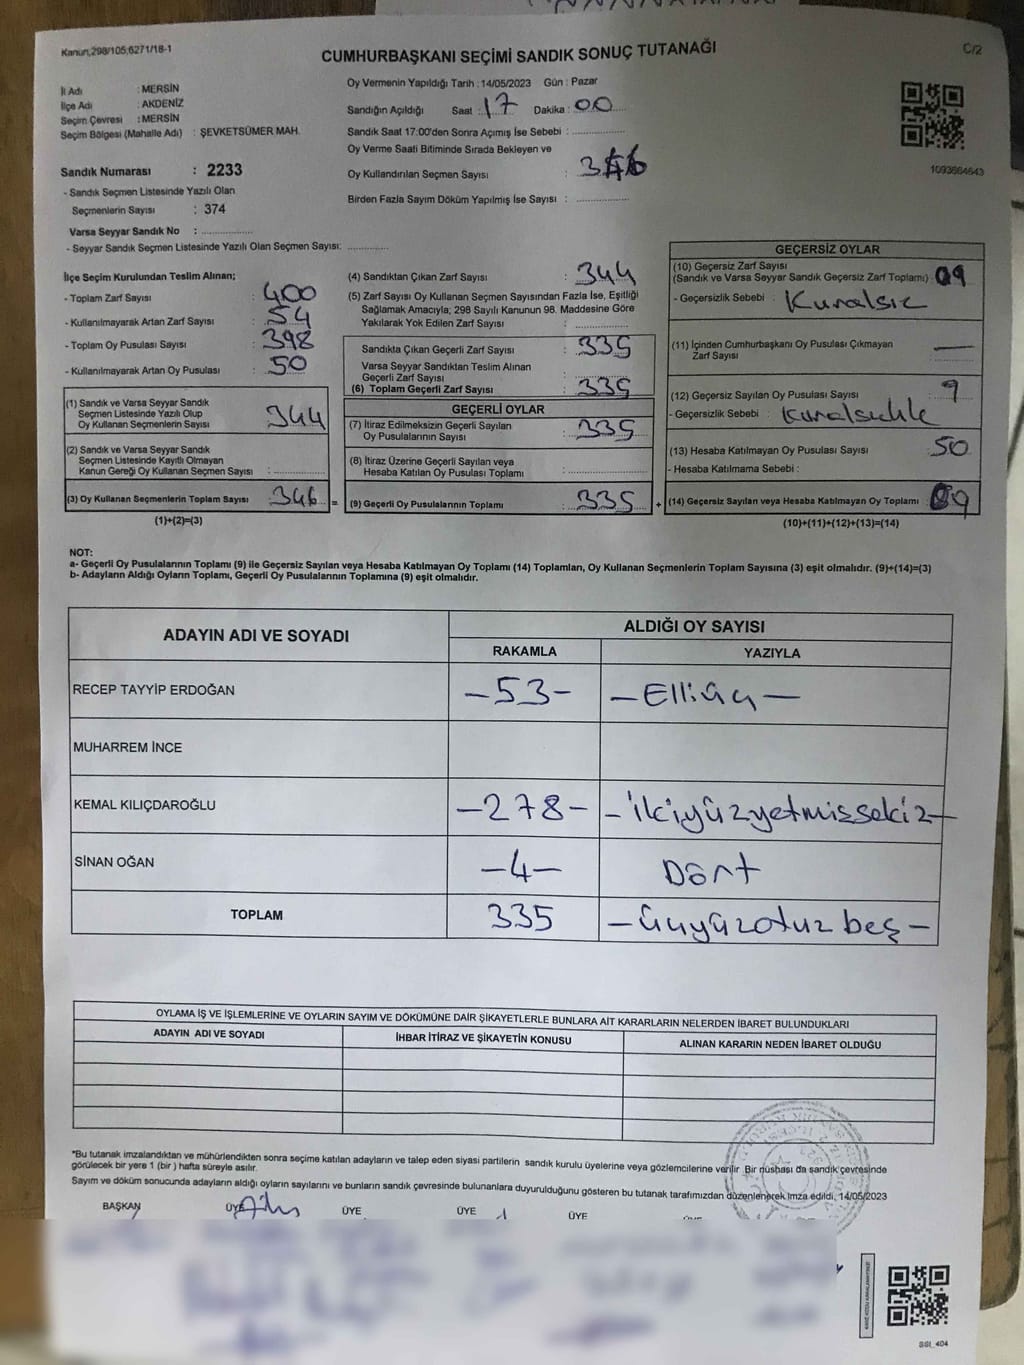 Kanun,298/105;6271/18-1
CUMHURBAŞKANI SEÇİMİ SANDIK SONUÇ TUTANAĞI
C/2
İl Adı : MERSİN
İlçe Adı : AKDENİZ
Seçim Çevresi : MERSİN
Seçim Bölgesi (Mahalle Adı) : ŞEVKETSÜMER MAH.
Sandık Numarası : 2233
- Sandık Seçmen Listesinde Yazılı Olan
Seçmenlerin Sayısı : 374
Varsa Seyyar Sandık No : ................
- Seyyar Sandık Seçmen Listesinde Yazılı Olan Seçmen Sayısı: .............
Oy Vermenin Yapıldığı Tarih : 14/05/2023 Gün : Pazar
Sandığın Açıldığı Saat : 17 Dakika : 00
Sandık Saat 17:00'den Sonra Açımış İse Sebebi : ................
Oy Verme Saati Bitiminde Sırada Bekleyen ve
Oy Kullandırılan Seçmen Sayısı :
Birden Fazla Sayım Döküm Yapılmış İse Sayısı : ................
1093664643
İlçe Seçim Kurulundan Teslim Alınan;
- Toplam Zarf Sayısı : 400
- Kullanılmayarak Artan Zarf Sayısı : 54
- Toplam Oy Pusulası Sayısı : 398
- Kullanılmayarak Artan Oy Pusulası : 50
(1) Sandık ve Varsa Seyyar Sandık
Seçmen Listesinde Yazılı Olup
Oy Kullanan Seçmenlerin Sayısı : 344
(2) Sandık ve Varsa Seyyar Sandık
Seçmen Listesinde Kayıtlı Olmayan
Kanun Gereği Oy Kullanan Seçmen Sayısı : ................
(3) Oy Kullanan Seçmenlerin Toplam Sayısı : 346 =
(1)+(2)=(3)
(4) Sandıktan Çıkan Zarf Sayısı : 344
(5) Zarf Sayısı Oy Kullanan Seçmen Sayısından Fazla İse, Eşitliği
Sağlamak Amacıyla; 298 Sayılı Kanunun 98. Maddesine Göre
Yakılarak Yok Edilen Zarf Sayısı : ................
Sandıkta Çıkan Geçerli Zarf Sayısı : 335
Varsa Seyyar Sandıktan Teslim Alınan
Geçerli Zarf Sayısı : ................
(6) Toplam Geçerli Zarf Sayısı : 335
GEÇERLİ OYLAR
(7) İtiraz Edilmeksizin Geçerli Sayılan
Oy Pusulalarının Sayısı : 335
(8) İtiraz Üzerine Geçerli Sayılan veya
Hesaba Katılan Oy Pusulası Toplamı : ................
(9) Geçerli Oy Pusulalarının Toplamı : 335 +
GEÇERSİZ OYLAR
(10) Geçersiz Zarf Sayısı
(Sandık ve Varsa Seyyar Sandık Geçersiz Zarf Toplamı) : 09
- Geçersizlik Sebebi : Kuralsız
(11) İçinden Cumhurbaşkanı Oy Pusulası Çıkmayan
Zarf Sayısı : —
(12) Geçersiz Sayılan Oy Pusulası Sayısı : 9
- Geçersizlik Sebebi : Kuralsızlık
(13) Hesaba Katılmayan Oy Pusulası Sayısı : 50
- Hesaba Katılmama Sebebi :
(14) Geçersiz Sayılan veya Hesaba Katılmayan Oy Toplamı : 09
(10)+(11)+(12)+(13)=(14)
NOT:
a- Geçerli Oy Pusulalarının Toplamı (9) ile Geçersiz Sayılan veya Hesaba Katılmayan Oy Toplamı (14) Toplamları, Oy Kullanan Seçmenlerin Toplam Sayısına (3) eşit olmalıdır. (9)+(14)=(3)
b- Adayların Aldığı Oyların Toplamı, Geçerli Oy Pusulalarının Toplamına (9) eşit olmalıdır.
ADAYIN ADI VE SOYADI ALDIĞI OY SAYISI
RAKAMLA YAZIYLA
RECEP TAYYİP ERDOĞAN -53- -Elliüç-
MUHARREM İNCE
KEMAL KILIÇDAROĞLU -278- -ikiyüzyetmişsekiz-
SİNAN OĞAN -4- Dört
TOPLAM 335 -üçyüzotuzbeş-
OYLAMA İŞ VE İŞLEMLERİNE VE OYLARIN SAYIM VE DÖKÜMÜNE DAİR ŞİKAYETLERLE BUNLARA AİT KARARLARIN NELERDEN İBARET BULUNDUKLARI
ADAYIN ADI VE SOYADI İHBAR İTİRAZ VE ŞİKAYETİN KONUSU ALINAN KARARIN NEDEN İBARET OLDUĞU
*Bu tutanak imzalandıktan ve mühürlendikten sonra seçime katılan adayların ve talep eden siyasi partilerin sandık kurulu üyelerine veya gözlemcilerine verilir. Bir nüshası da sandık çevresinde
görülecek bir yere 1 (bir ) hafta süreyle asılır.
Sayım ve döküm sonucunda adayların aldığı oyların sayılarını ve bunların sandık çevresinde bulunanlara duyurulduğunu gösteren bu tutanak tarafımızdan düzenlenerek imza edildi, 14/05/2023
BAŞKAN ÜYE ÜYE ÜYE ÜYE
SSI_404